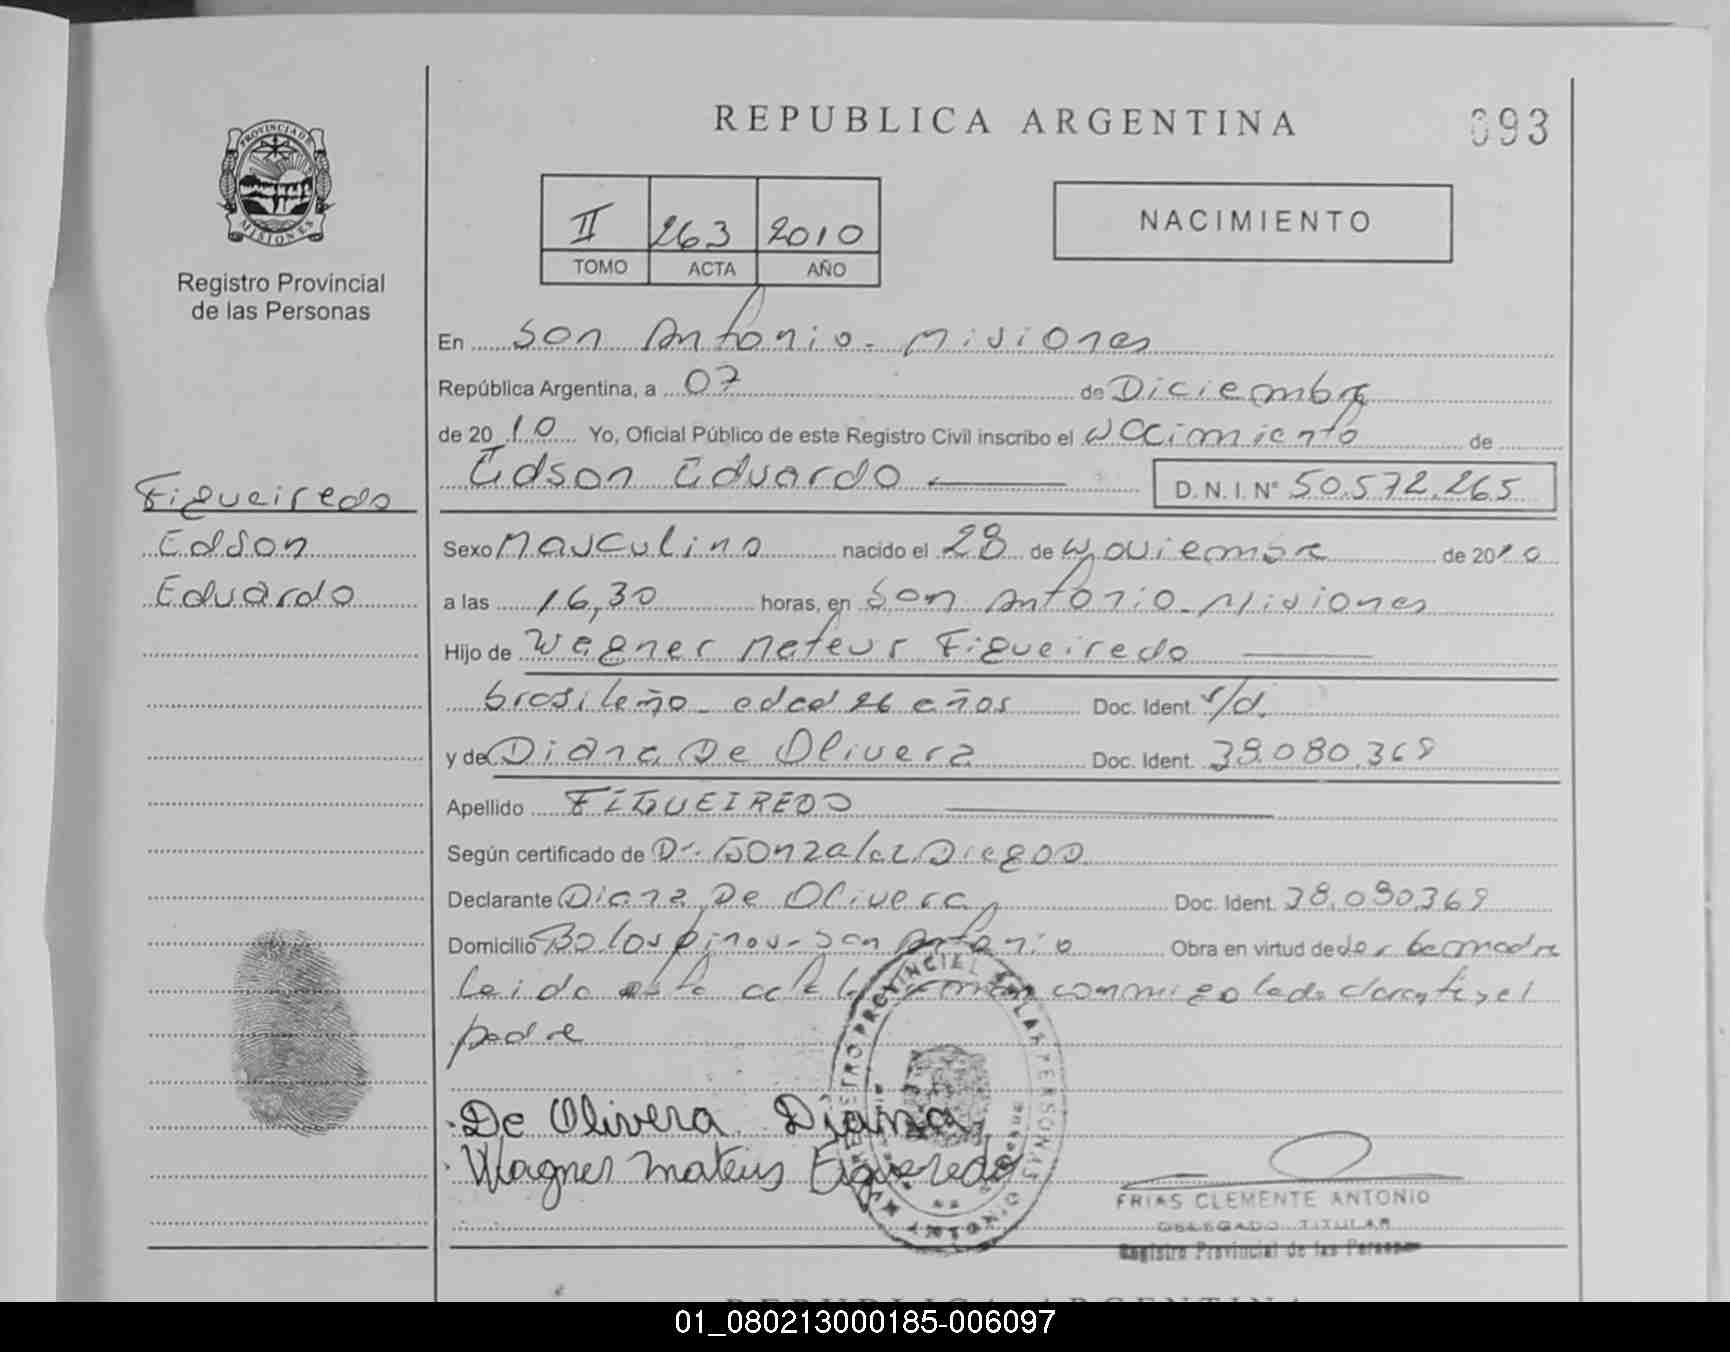 REPUBLICA ARGENTINA
093
PROVINCIA DE
MISIONES
Registro Provincial
de las Personas
II 263 2010
TOMO ACTA AÑO
NACIMIENTO
En San Antonio - Misiones
República Argentina, a 07 de Diciembre
de 2010 Yo, Oficial Público de este Registro Civil inscribo el Nacimiento de
Edson Eduardo
D.N.I. Nº 50.572.265
Figueiredo
Edson
Eduardo
Sexo Masculino nacido el 28 de Noviembre de 2010
a las 16,30 horas, en San Antonio - Misiones
Hijo de Wagner Mateus Figueiredo
brasileño - edad 26 años Doc. Ident. s/d.
y de Diana De Olivera Doc. Ident. 38.080.369
Apellido FIGUEIREDO
Según certificado de Dr. Gonzalez Diego D.
Declarante Diana De Olivera Doc. Ident. 38.080.369
Domicilio Bo. los pinos - San Antonio Obra en virtud de ser la madre
Leida esta acta la firman conmigo la declarante y el
padre
De Olivera Diana
Wagner Mateus Figueredo
REGISTRO PROVINCIAL DE LAS PERSONAS
FRIAS CLEMENTE ANTONIO
DELEGADO TITULAR
Registro Provincial de las Personas
REPUBLICA ARGENTINA
01_080213000185-006097